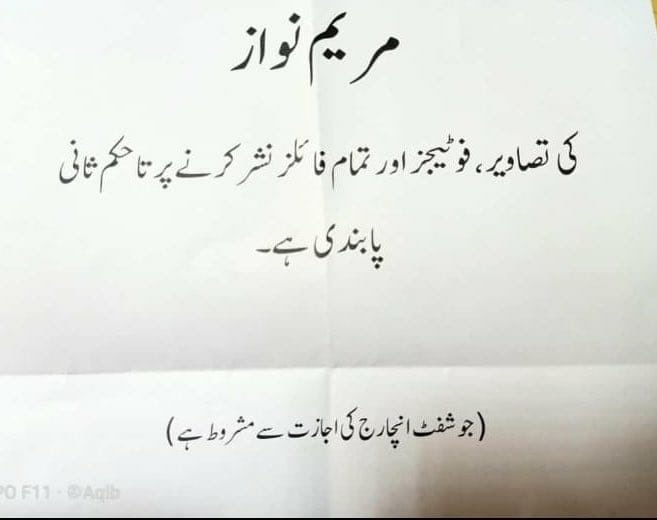 مریم نواز
کی تصاویر، فوٹیجز اور تمام فائلز نشر کرنے پر تا حکم ثانی
پابندی ہے۔
(جو شفٹ انچارج کی اجازت سے مشروط ہے)
PO F11 · ©Aqib